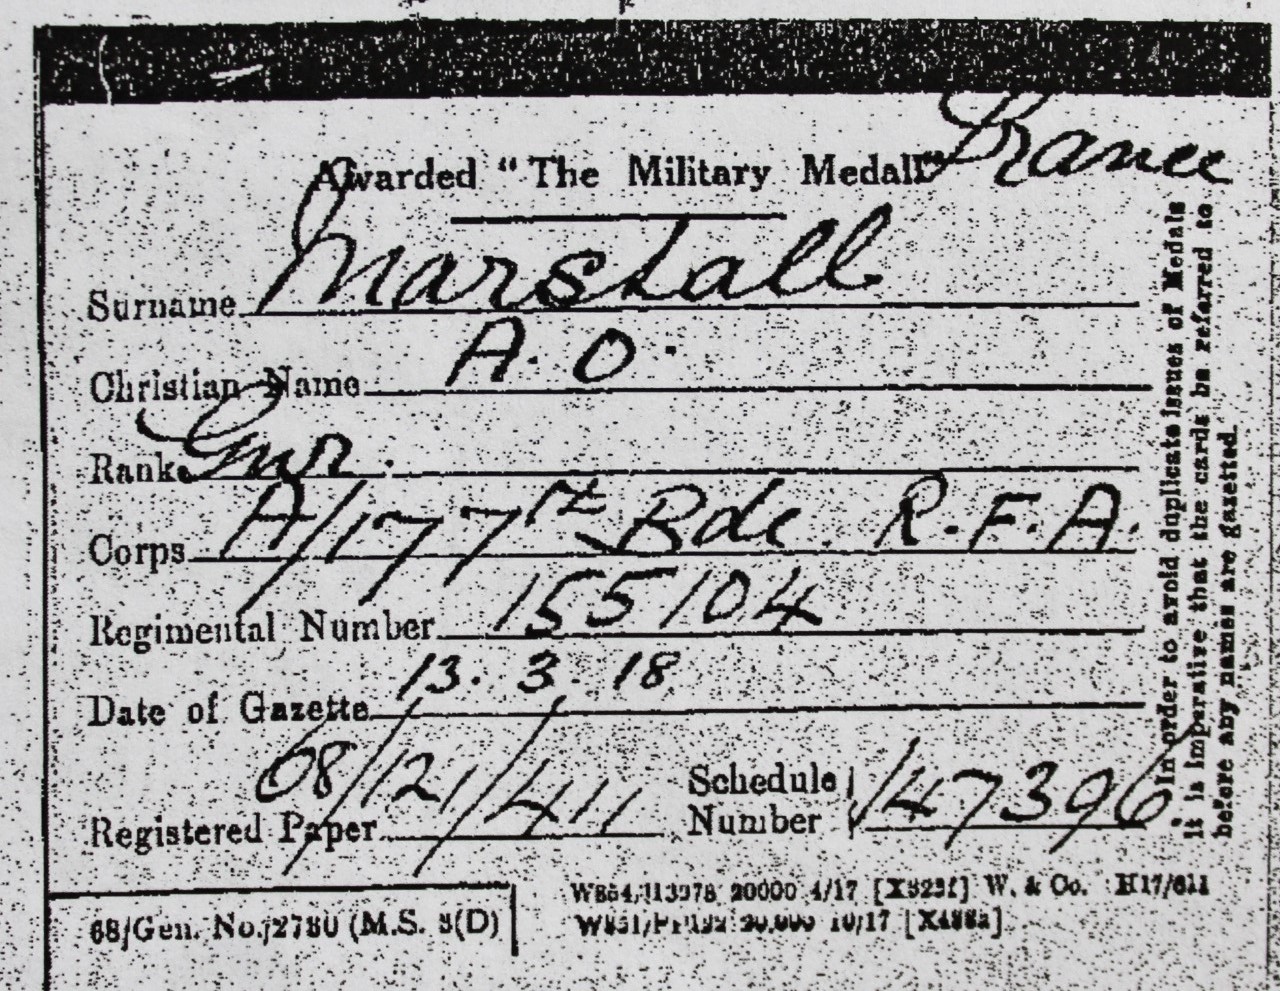 Awarded "The Military Medal" France
Surname Marshall
Christian Name A. O.
Rank Gnr.
Corps A/177th Bde. R.F.A.
Regimental Number 155104
Date of Gazette 13. 3. 18
Registered Paper 68/121/411
Schedule Number 147396
68/Gen. No./2780 (M.S. 3(D)
20000 4/17 W. & Co. H17/611
10/17
In order to avoid duplicate issues of Medals
it is imperative that the cards be referred to
before any names are gazetted.